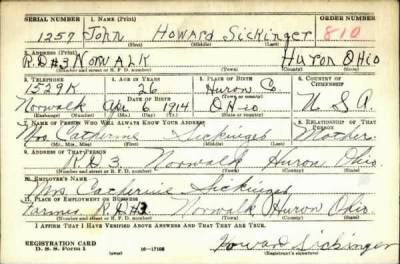 SERIAL NUMBER 1. NAME (Print) ORDER NUMBER
1257 John Howard Sickinger 810
(First) (Middle) (Last)
2. ADDRESS (Print)
R.D#3 NORWALK HURON OHIO
(Number and street or R. F. D. number) (Town) (County) (State)
3. TELEPHONE 4. AGE IN YEARS 5. PLACE OF BIRTH 6. COUNTRY OF CITIZENSHIP
1529K 26 Huron Co.
DATE OF BIRTH (Town or county)
Norwalk Apr 6 1914 Ohio U S A
(Exchange) (Number) (Mo.) (Day) (Yr.) (State or country)
7. NAME OF PERSON WHO WILL ALWAYS KNOW YOUR ADDRESS 8. RELATIONSHIP OF THAT PERSON
Mrs. Catherine Sickinger Mother
(Mr., Mrs., Miss) (First) (Middle) (Last)
9. ADDRESS OF THAT PERSON
R.D.3 Norwalk Huron Ohio.
(Number and street or R. F. D. number) (Town) (County) (State)
10. EMPLOYER'S NAME
Mrs. Catherine Sickinger
11. PLACE OF EMPLOYMENT OR BUSINESS
Farmer R.D#3 Norwalk Huron Ohio.
(Number and street or R. F. D. number) (Town) (County) (State)
I AFFIRM THAT I HAVE VERIFIED ABOVE ANSWERS AND THAT THEY ARE TRUE.
REGISTRATION CARD
D. S. S. Form 1 (over) 16-17105 Howard Sickinger
(Registrant's signature)